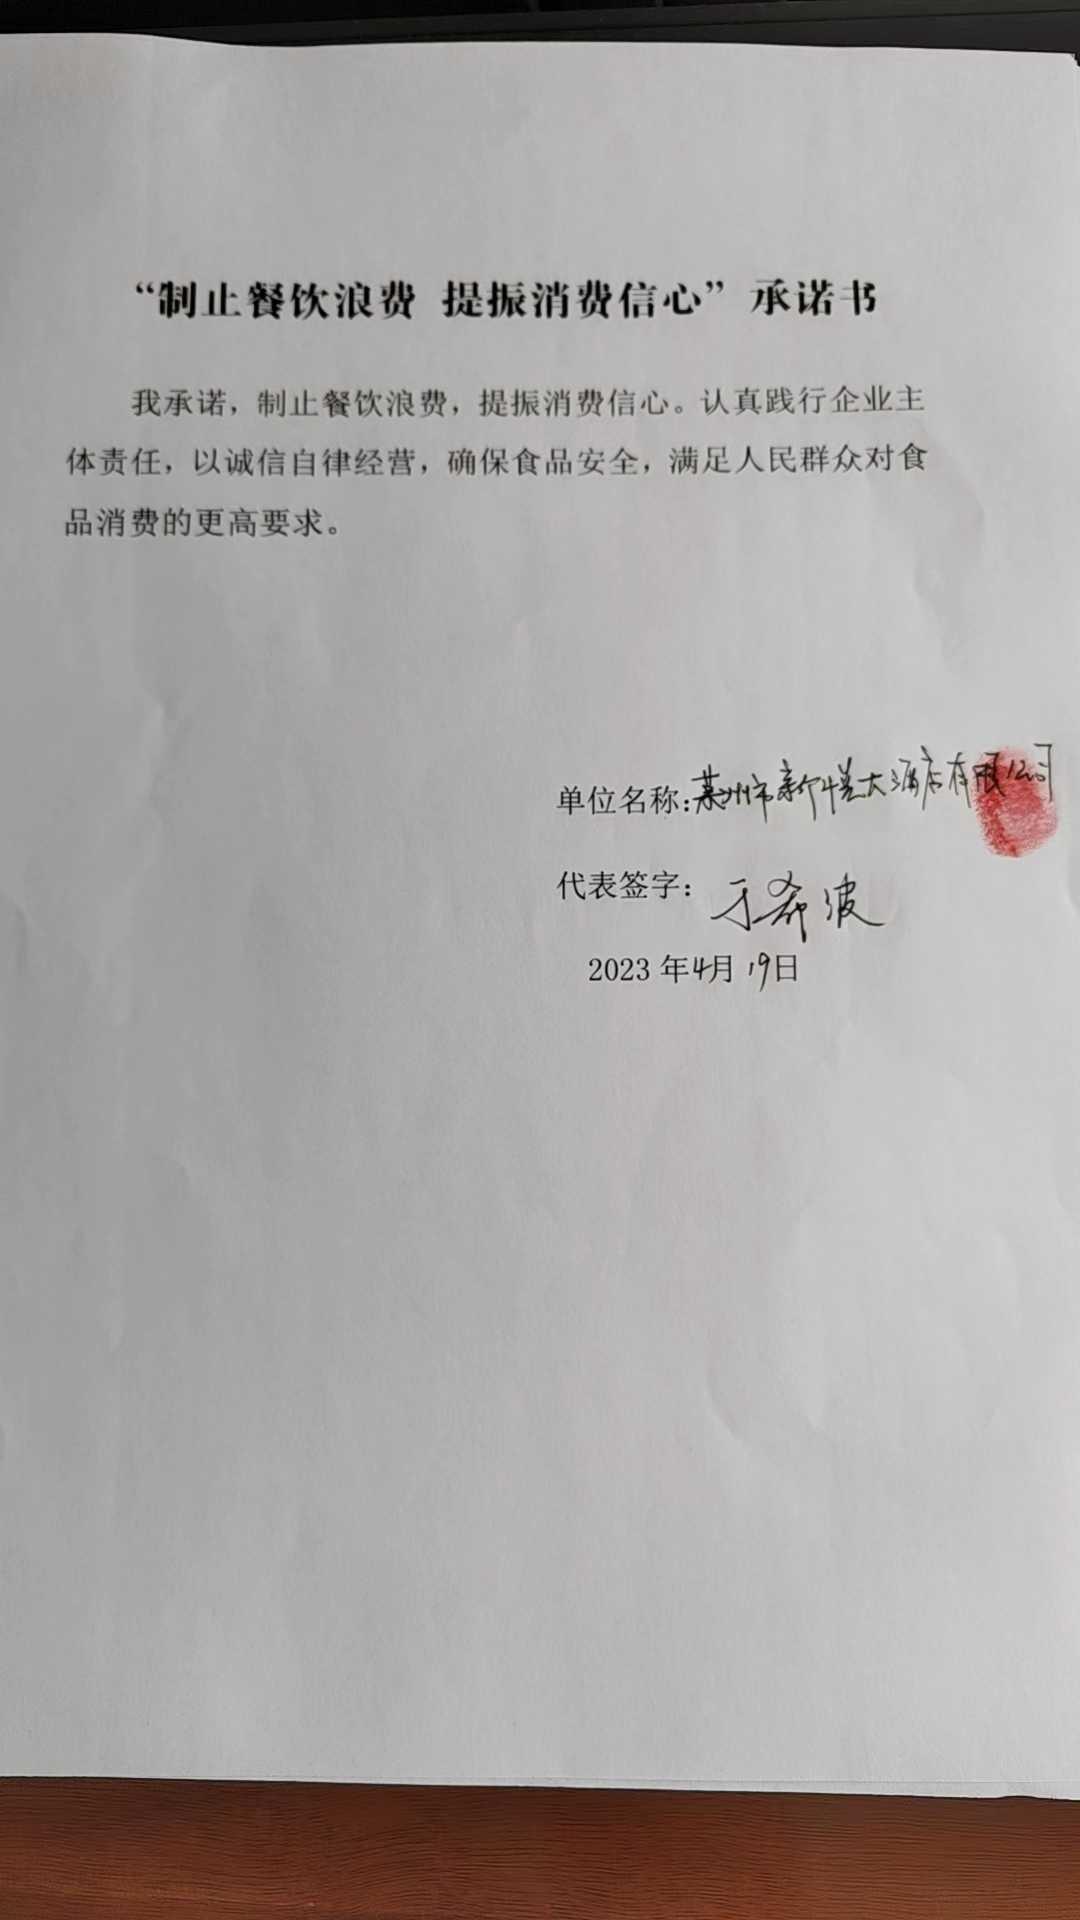 “制止餐饮浪费 提振消费信心”承诺书
我承诺，制止餐饮浪费，提振消费信心。认真践行企业主
体责任，以诚信自律经营，确保食品安全，满足人民群众对食
品消费的更高要求。
单位名称：莱州市新大酒店有限公司
代表签字：于希波
2023年4月19日